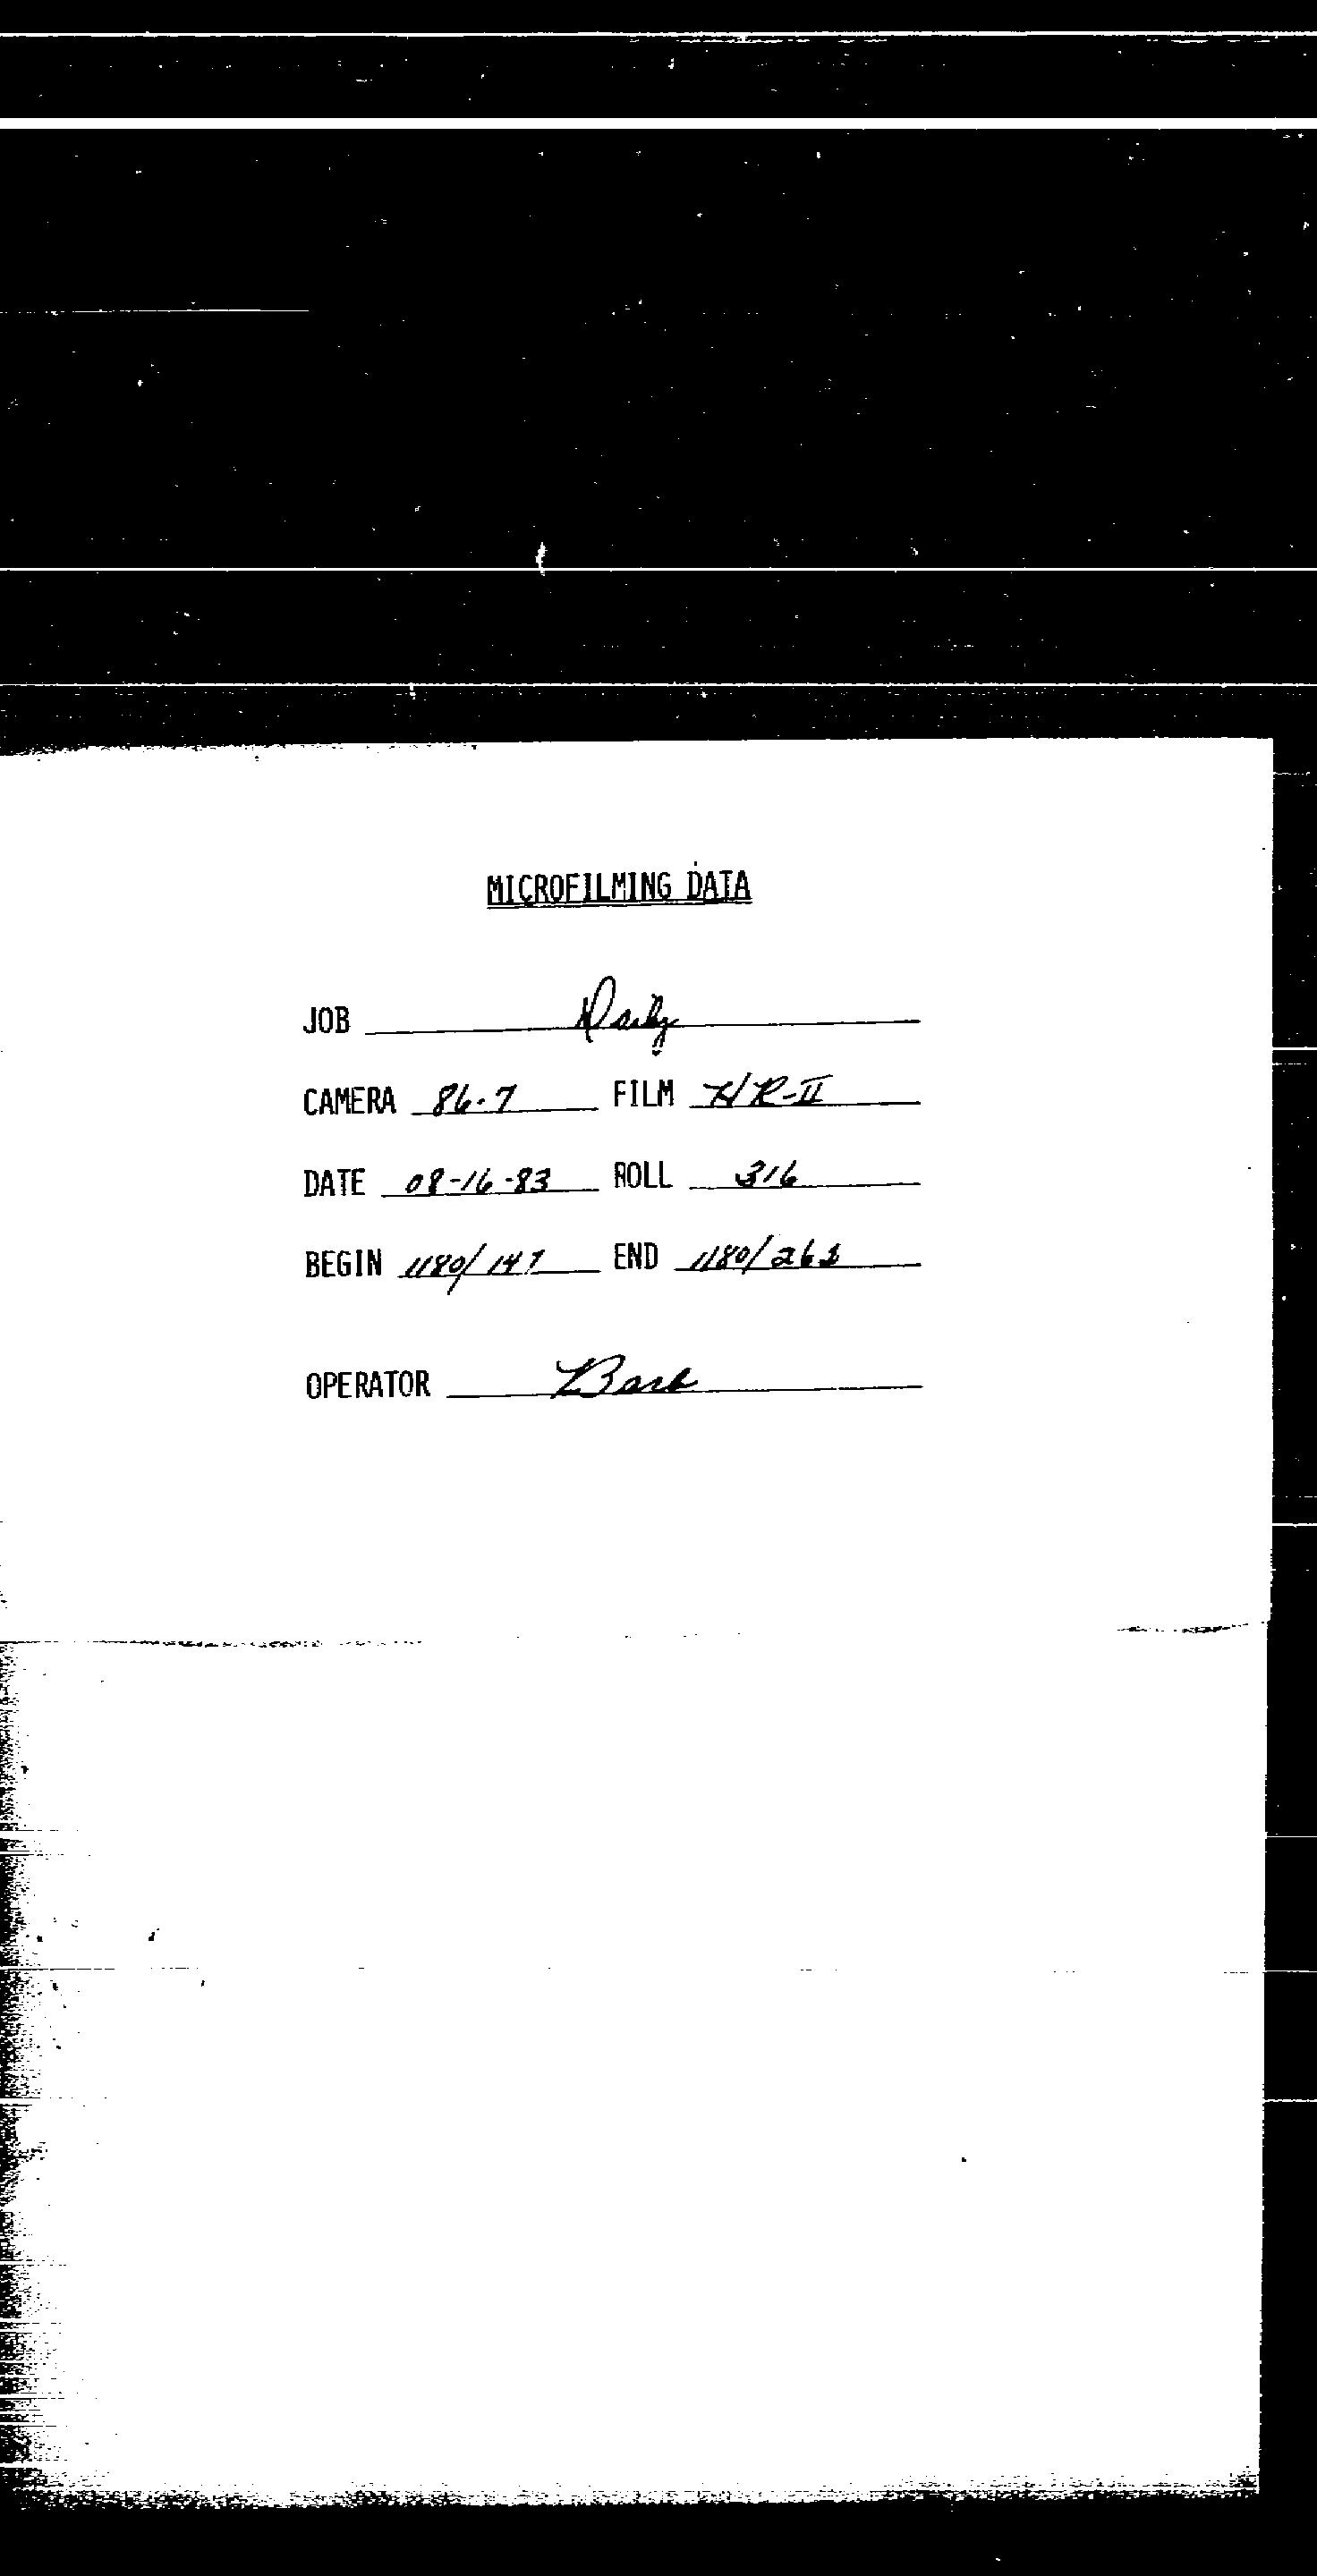 MICROFILMING DATA
JOB Daily
CAMERA 86-7 FILM HR-II
DATE 08-16-83 ROLL 316
BEGIN 1180/147 END
OPERATOR Barb